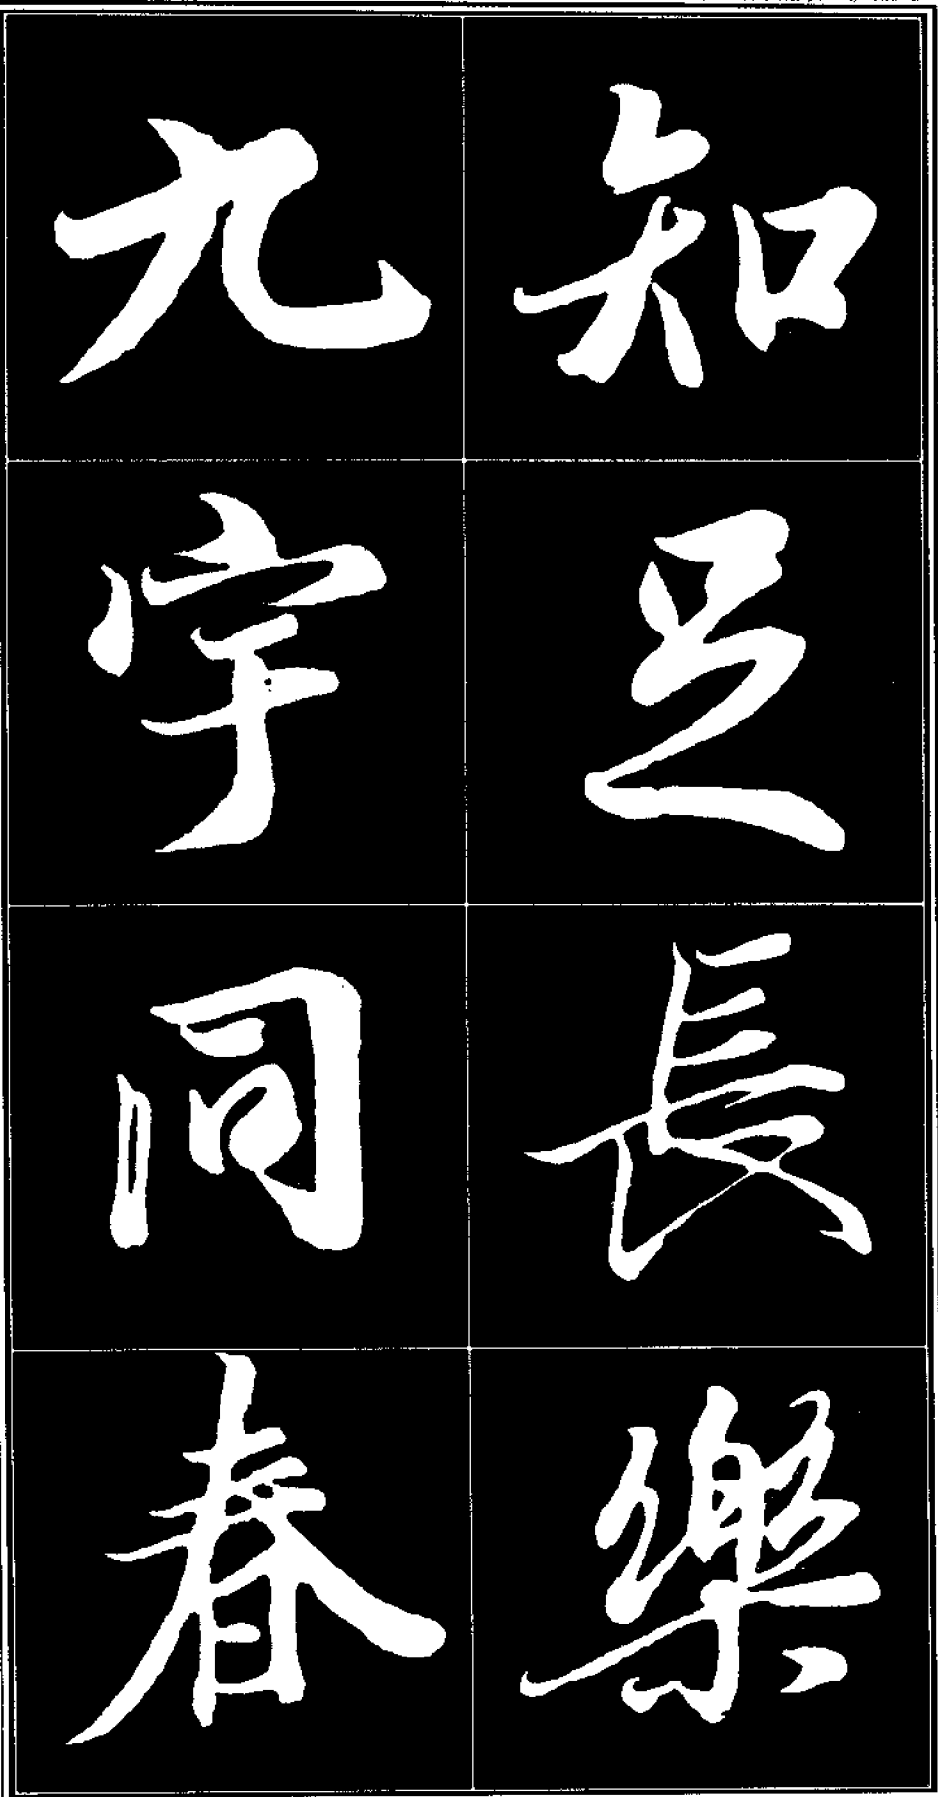 知足長樂
九宇同春